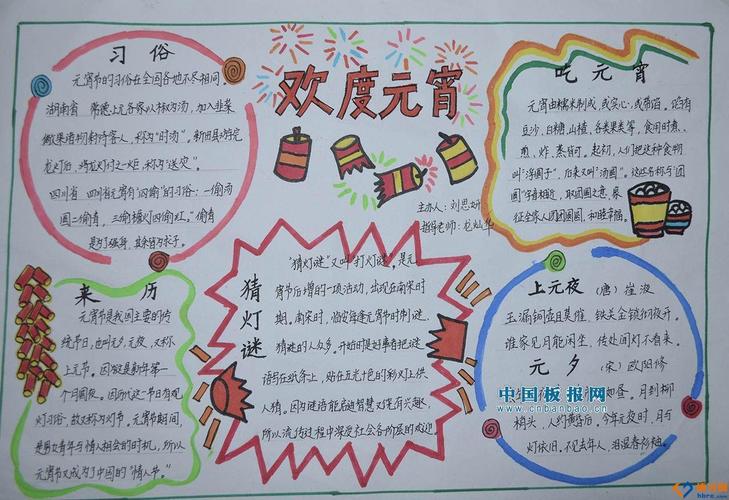 欢度元宵
主办人：刘思妍
指导老师：龙灿华
习俗
元宵节的习俗在全国各地不尽相同。
湖南省 常德上元吝以椒为汤，加入韭菜
龙灯后，将龙灯付之一炬，称为"送灾"。
四川省 四川省元宵有"四偷"的习俗：一偷汤
圆二偷青，三偷檐灯四偷红。"偷青
是为了强身，其余皆为求子。
吃元宵
元宵由糯米制成，或实心，或带馅。馅有
豆沙、白糖、山楂、各类果类等，食用时煮、
煎、炸、蒸皆可。起初，人们把这种食物
叫"浮圆子"，后来又叫"汤圆"。这些名称与"团
圆"字音相近，取团圆之意，象
征全家人团团圆圆，和睦幸福。
来历
元宵节是我国主要的传
统节日，也叫元夕、元夜，又称
上元节。因为这是新年第一
个月圆夜。因历代这一节日有观
灯习俗，故又称为灯节。元宵节期间，
是男女青年与情人相会的时机，所以
元宵节又成为了中国的"情人节"。
猜灯谜
"猜灯谜"又叫"打灯谜"。是元
宵节后增的一项活动，出现在南宋时
期。南宋时，临安每逢元宵节时制谜、
猜谜的人众多。开始时是好事者把谜
语写在纸条上，贴在五光十色的彩灯上供
人猜。因为谜语能启迪智慧又饶有兴趣，
所以流传过程中深受社会各阶层的欢迎。
上元夜 （唐）崔液
玉漏铜壶且莫催，铁关金锁彻夜开。
谁家见月能闲坐，何处闻灯不看来。
元夕 （宋）欧阳修
如昼。月到柳
梢头，人约黄昏后。今年元夜时，月与
灯依旧。不见去年人，泪湿春衫袖。
中国板报网
www.cnbanbao.cn